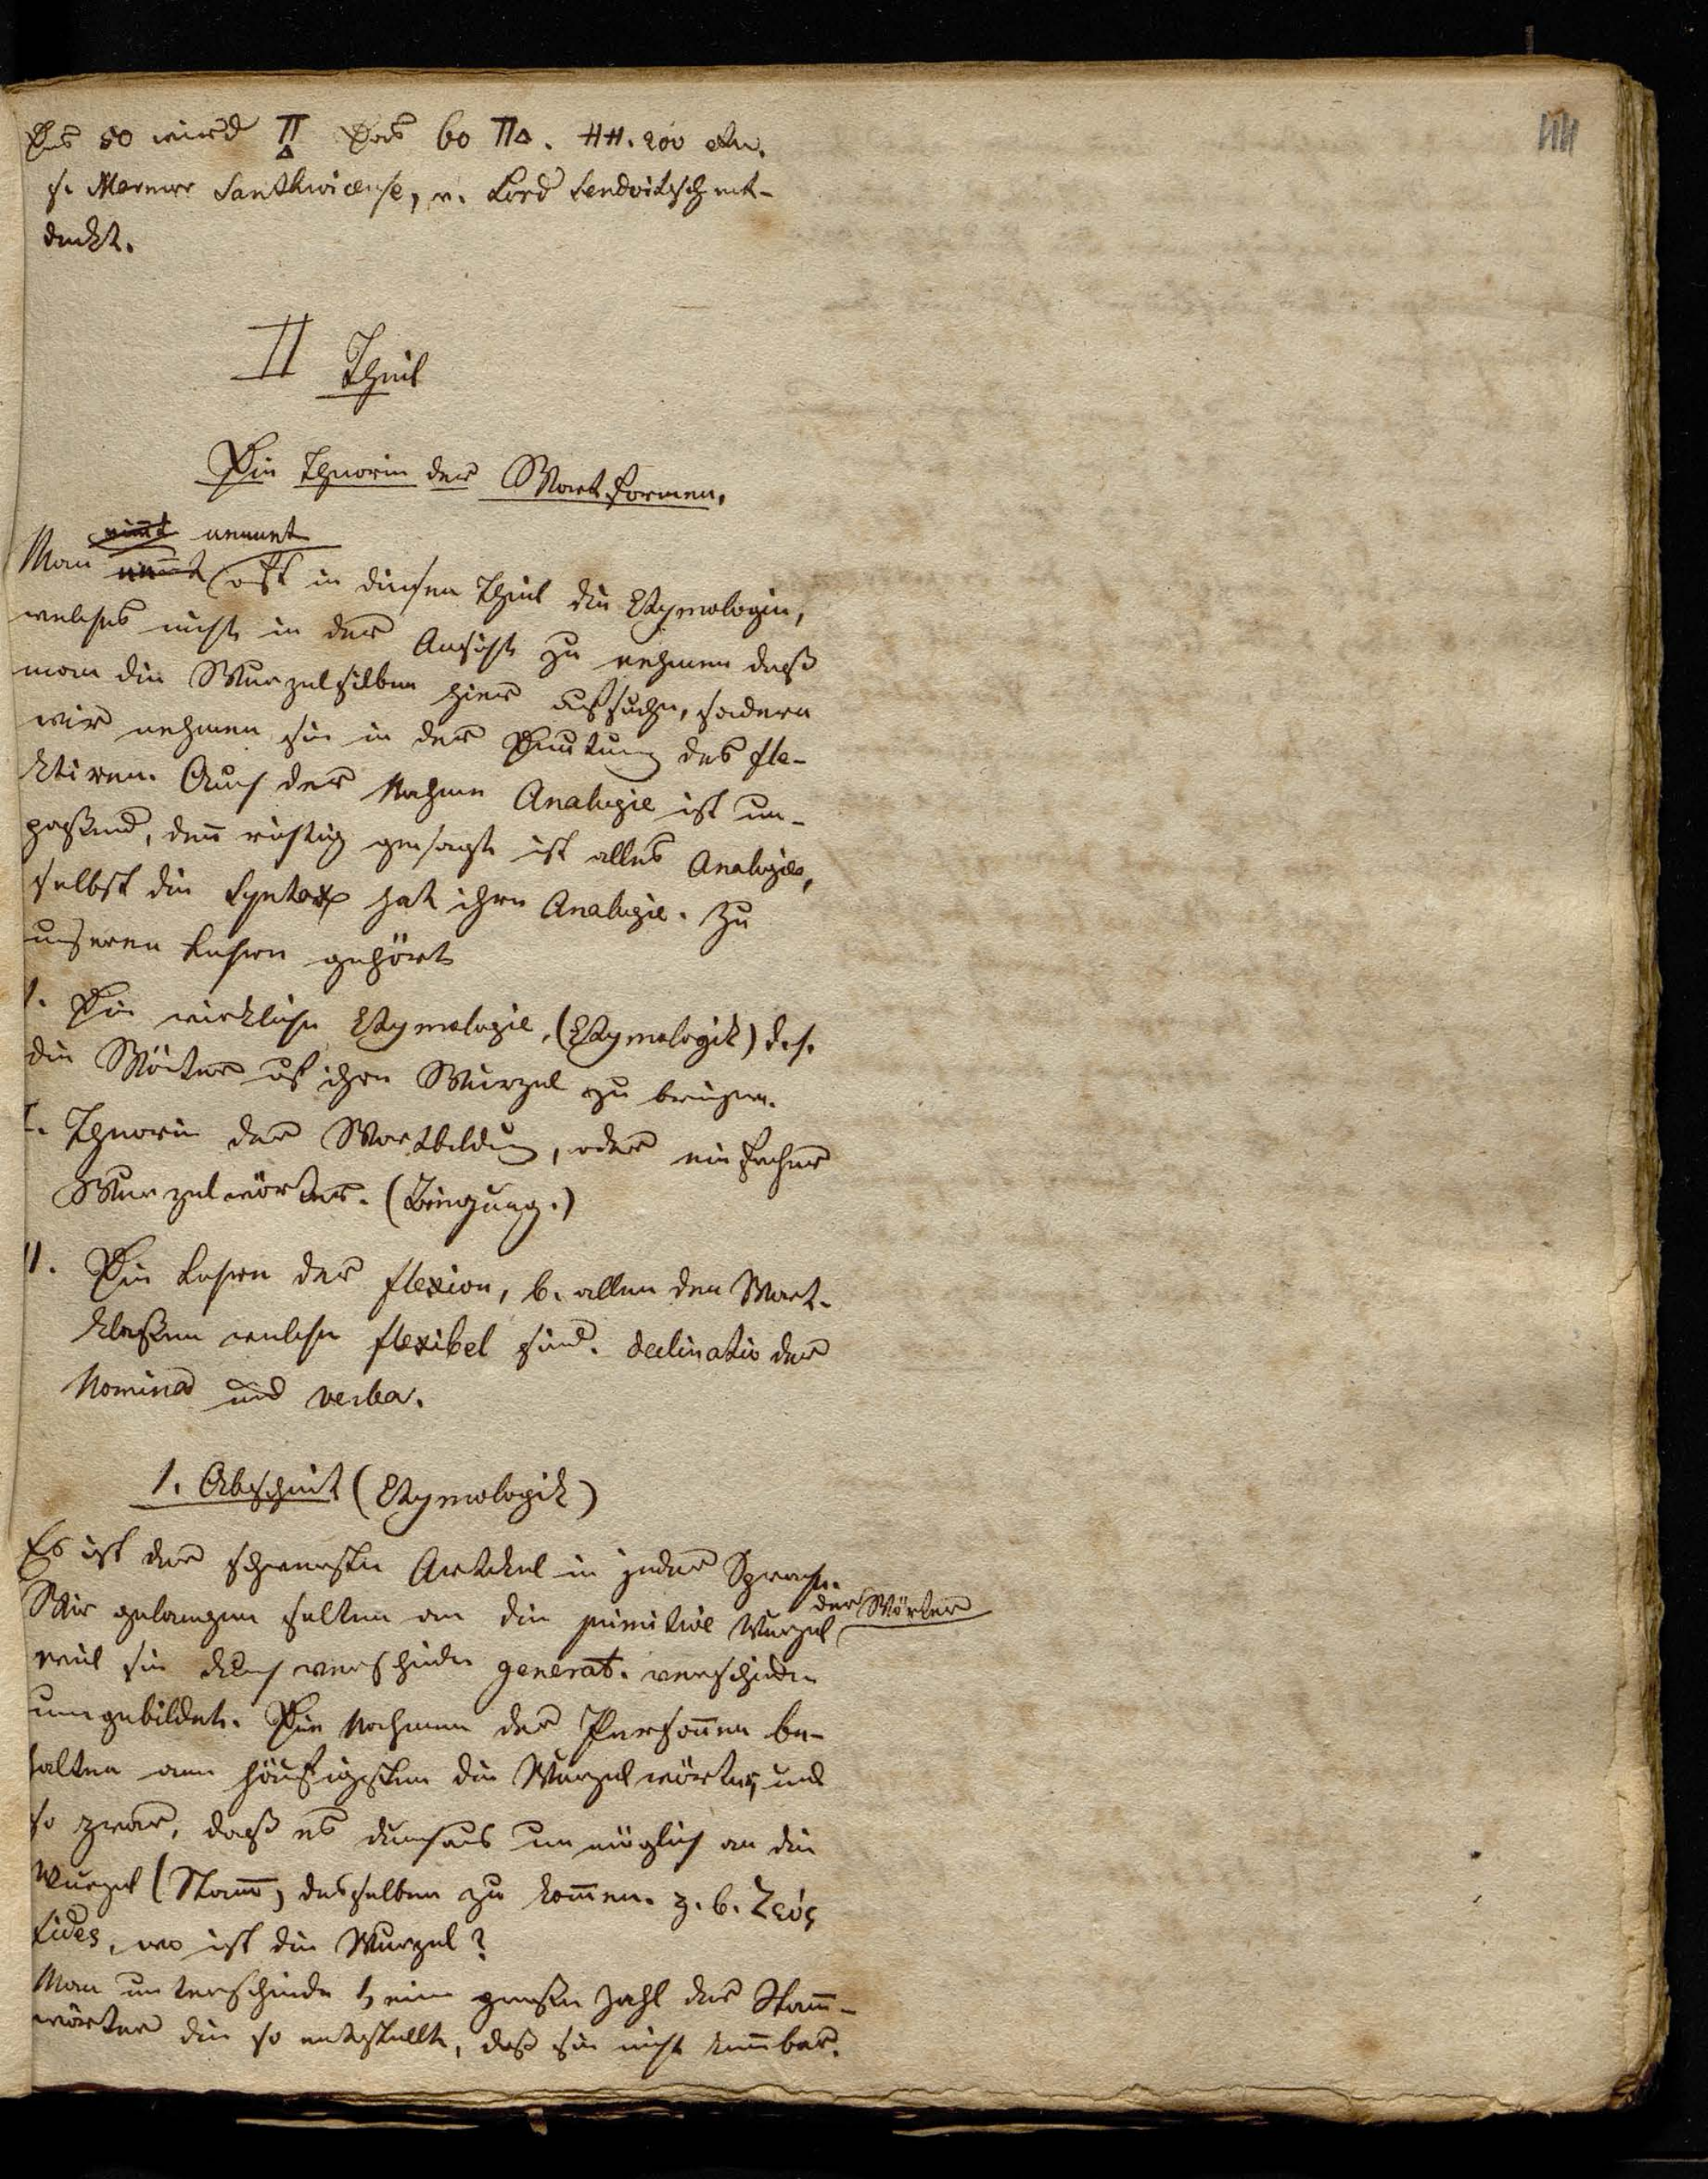 Das 50 wird Π Δ Das 60 ΠΔ. HH. 200 etc.
s. Marmor Santhwicense, v. Lord Sendwitsch ent-
deckt.
II Theil
Die Theorie der Wortformen.
nimt nennet
Man nennt oft in diesen Theil die Etymologie,
welches nicht in der Ansicht zu nehmen daß
man die Wurzelsilben hier aufsuche, sondern
wir nehmen sie in der Deutung des fle-
ktiren. Auch der Nahme Analogie ist un-
paßend, den̄ richtig gesagt ist alles Analogie,
selbst die Syntax hat ihre Analogie. Zu
unseren Lehren gehört
1. Die wirkliche Etymologie, (Etymologik) d. h.
die Wörter auf ihre Wurzel zu bringen.
I. Theorie der Wortbildung, oder einfacher
Wurzelwörter. (Biegung.)
II. Die Lehre der flexion, b. allen den Wort-
klaßen welche flexibel sind. declinatio der
Nomina und verba.
1. Abschnit (Etymologik)
Es ist der schwerste Artikel in jeder Sprache.
Wir gelangen selten an die primitive Wurzel der Wörter
weil sie durch verschiedene generat. verschieden
umgebildet. Die Nahmen der Persōnen be-
halten am häufigsten die Wurzelwörter, und
so zwar, daß es durchaus unmöglich an die
Wurzel (Stam̄) desselben zu kom̄en. z. b. Ζεύς
fides, wo ist die Wurzel?
Man unterscheide 1, eine große Zahl der Stam̄-
wörter die so entstellt, daß sie nicht ken̄bar.
44